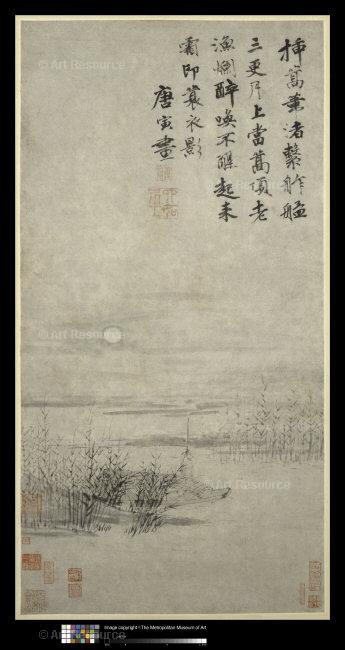 插篙葦渚繫舴艋
三更月上當篙頂老
漁爛醉喚不醒起來
霜印蓑衣影
唐寅畫
© Art Resource
© Art Resource
© Art Resource
© Art Resource
© Art Resource
Image copyright ©The Metropolitan Museum of Art